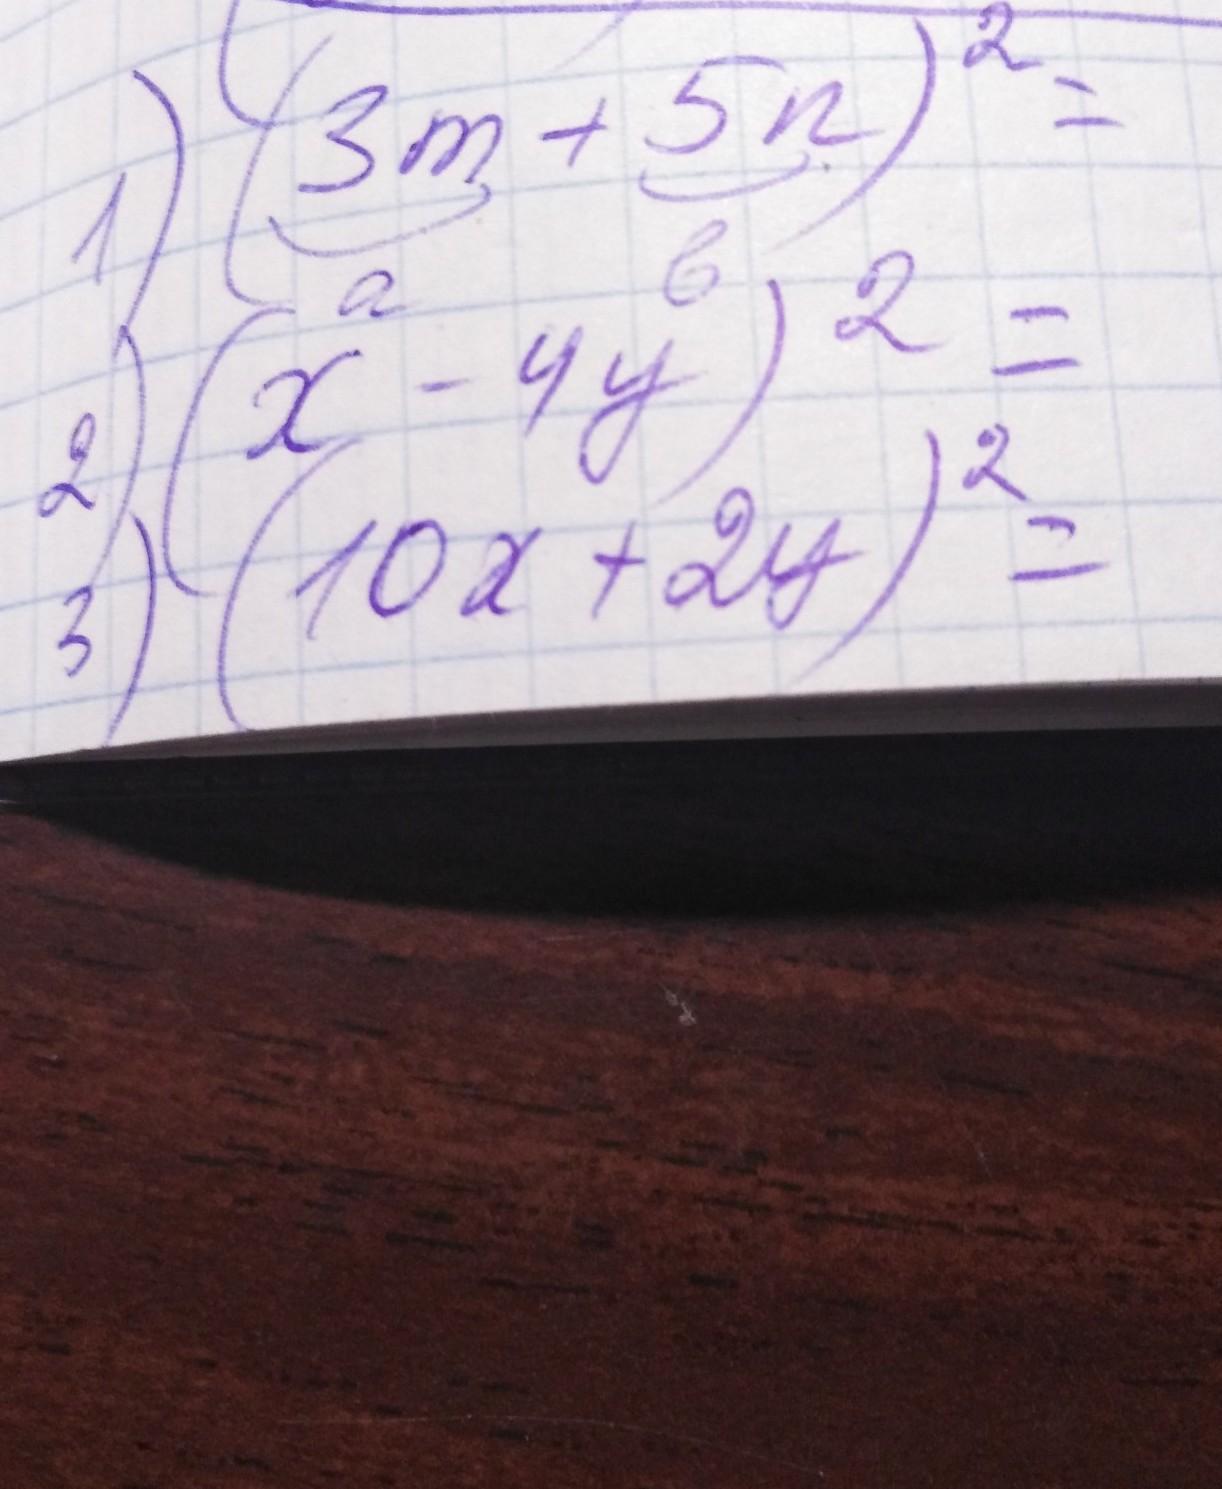 1) (3m + 5n)² =
a в
2) (x - 4y)² =
3) (10x + 2y)² =